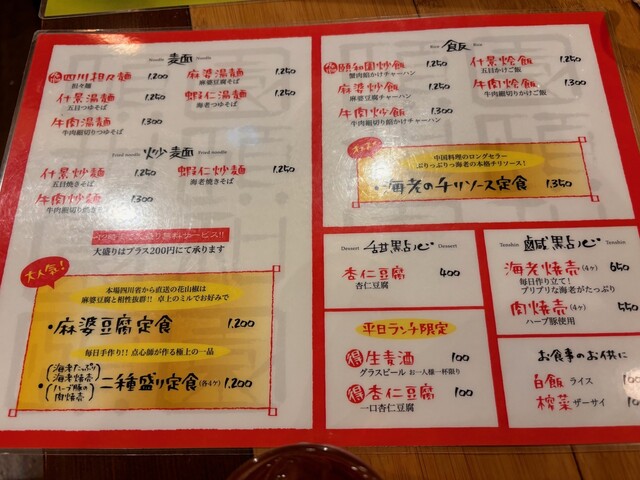 Noodle 麺 Noodle
四川担々麺 1.200
担々麺
麻婆湯麺 1.250
麻婆豆腐そば
什景湯麺 1.250
五目つゆそば
蝦仁湯麺 1.250
海老つゆそば
牛肉湯麺 1.300
牛肉細切りつゆそば
Fried noodle 炒麺 Fried noodle
什景炒麺 1.250
五目焼きそば
蝦仁炒麺 1.250
海老焼きそば
牛肉炒麺 1.300
牛肉細切り焼きそば
無料サービス!!
大盛りはプラス200円にて承ります
大人気!
本場四川省から直送の花山椒は
麻婆豆腐と相性抜群!! 卓上のミルでお好みで
・麻婆豆腐定食 1.200
毎日手作り!! 点心師が作る極上の一品
・(海老たっぷり海老焼売)(ハーブ豚の肉焼売)二種盛り定食(各4ケ) 1.200
Rice 飯 Rice
頤和園炒飯 1.250
蟹肉餡かけチャーハン
什景烩飯 1.250
五目かけご飯
麻婆炒飯 1.250
麻婆豆腐餡かけチャーハン
牛肉烩飯 1.300
牛肉細切りかけご飯
牛肉炒飯 1.300
牛肉細切り餡かけチャーハン
中国料理のロングセラー
ぷりっぷりっ海老の本格チリソース!
・海老のチリソース定食 1.350
Dessert 甜點心 Dessert
杏仁豆腐 400
杏仁豆腐
平日ランチ限定
得 生麦酒 100
グラスビール お一人様一杯限り
得 杏仁豆腐 100
一口杏仁豆腐
Tenshin 鹹點心 Tenshin
海老焼売(4ヶ) 650
毎日作り立て!
プリプリな海老がたっぷり
肉焼売(4ヶ) 550
ハーブ豚使用
お食事のお供に
白飯 ライス
榨菜 ザーサイ